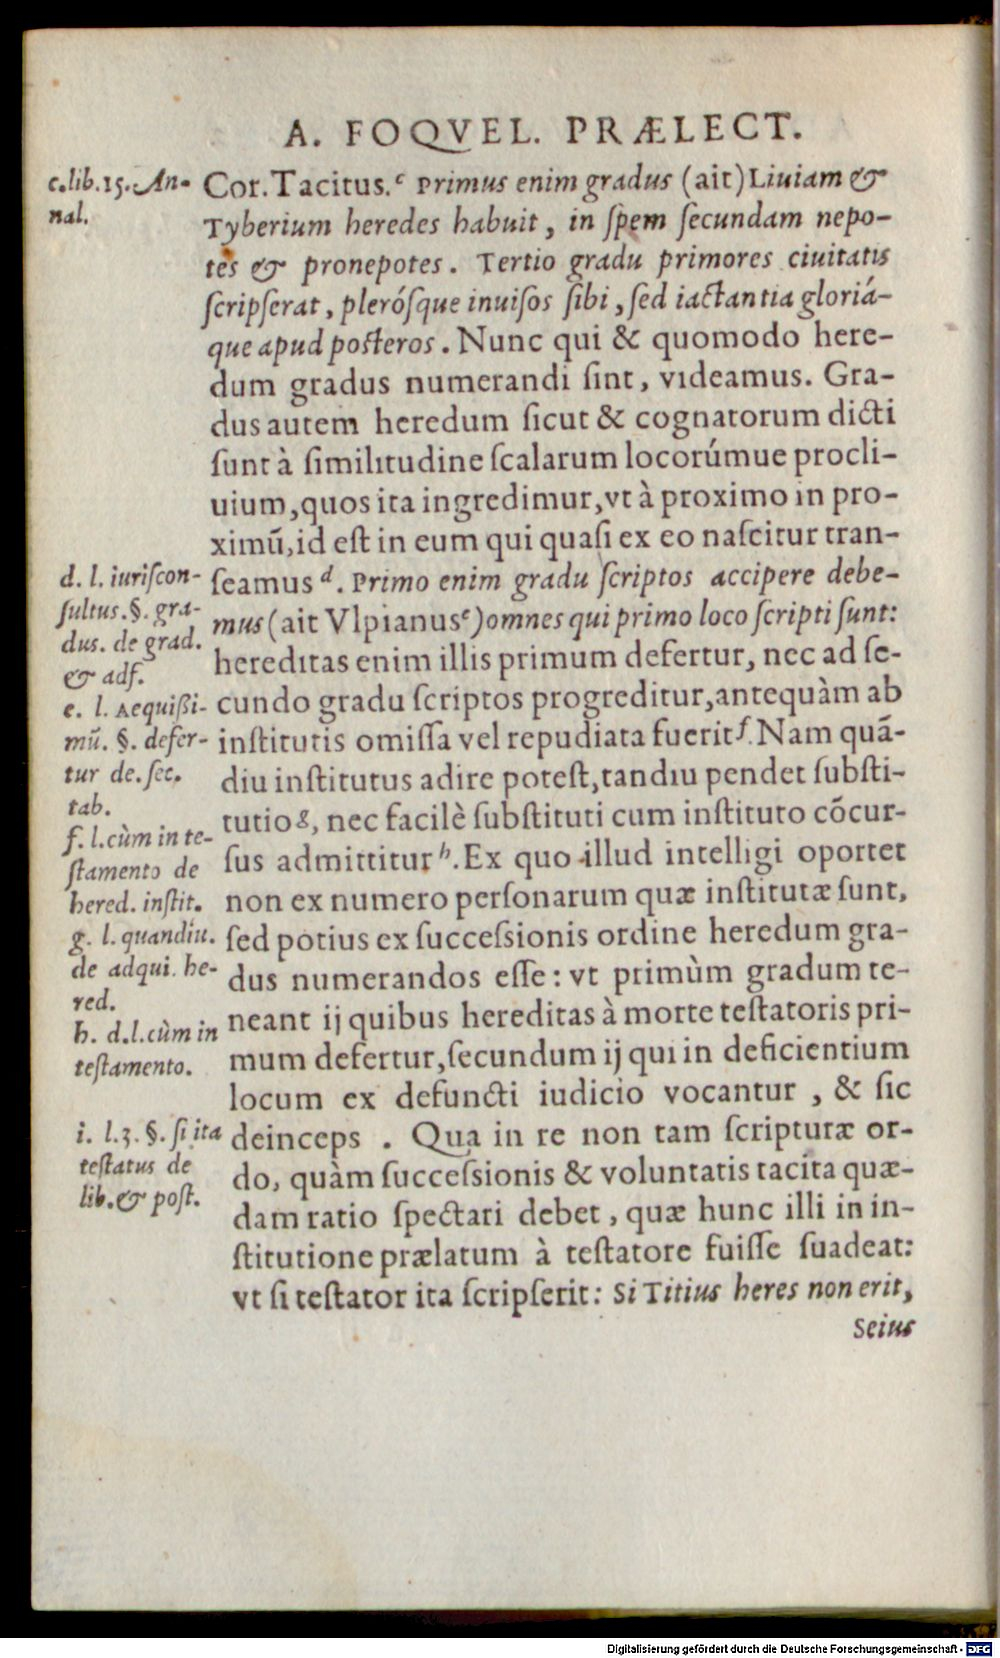 A. FOQVEL. PRÆLECT.
c. lib. 15. An-
nal.
Cor. Tacitus.ᶜ Primus enim gradus (ait) Liuiam &
Tyberium heredes habuit, in ſpem ſecundam nepo-
tes & pronepotes. Tertio gradu primores ciuitatis
ſcripſerat, pleróſque inuiſos ſibi, ſed iactantia gloriá-
que apud poſteros. Nunc qui & quomodo here-
dum gradus numerandi ſint, videamus. Gra-
dus autem heredum ſicut & cognatorum dicti
ſunt à ſimilitudine ſcalarum locorúmue procli-
uium, quos ita ingredimur, vt à proximo in pro-
ximũ, id eſt in eum qui quaſi ex eo naſcitur tran-
ſeamus ᵈ. Primo enim gradu ſcriptos accipere debe-
mus (ait Vlpianusᵉ) omnes qui primo loco ſcripti ſunt:
hereditas enim illis primum defertur, nec ad ſe-
cundo gradu ſcriptos progreditur, antequàm ab
inſtitutis omiſſa vel repudiata fuerit ᶠ. Nam quã-
diu inſtitutus adire poteſt, tandiu pendet ſubſti-
tutio ᵍ, nec facilè ſubſtituti cum inſtituto cõcur-
ſus admittitur ʰ. Ex quo illud intelligi oportet
non ex numero perſonarum quæ inſtitutæ ſunt,
ſed potius ex ſucceſsionis ordine heredum gra-
dus numerandos eſſe: vt primùm gradum te-
neant ij quibus hereditas à morte teſtatoris pri-
mum defertur, ſecundum ij qui in deficientium
locum ex defuncti iudicio vocantur, & ſic
deinceps. Qua in re non tam ſcripturæ or-
do, quàm ſucceſsionis & voluntatis tacita quæ-
dam ratio ſpectari debet, quæ hunc illi in in-
ſtitutione prælatum à teſtatore fuiſſe ſuadeat:
vt ſi teſtator ita ſcripſerit: Si Titius heres non erit,
Seius
d. l. iuriſcon-
ſultus. §. gra-
dus. de grad.
& adf.
e. l. Aequißi-
mũ. §. defer-
tur de. ſec.
tab.
f. l. cùm in te-
ſtamento de
hered. inſtit.
g. l. quandiu.
de adqui. he-
red.
h. d. l. cùm in
teſtamento.
i. l. 3. §. ſi ita
teſtatus de
lib. & poſt.
Digitalisierung gefördert durch die Deutsche Forschungsgemeinschaft - DFG